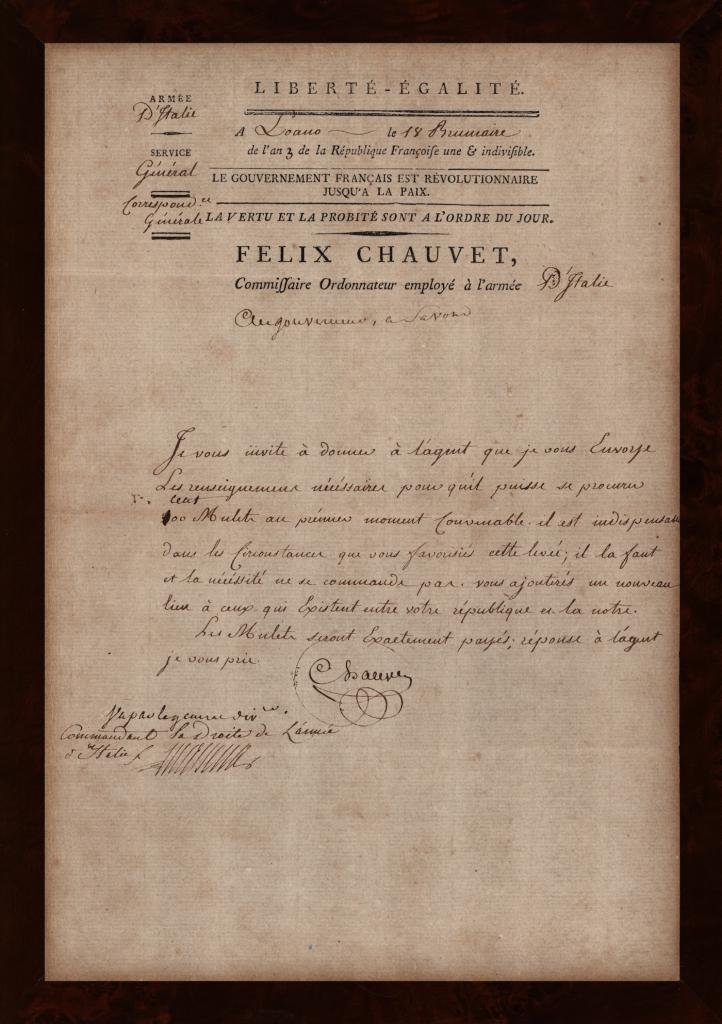 LIBERTÉ-ÉGALITÉ.
ARMÉE
D'Italie
A Loano le 18 Brumaire
de l'an 3 de la République Françoiſe une & indiviſible.
SERVICE
Général
LE GOUVERNEMENT FRANÇAIS EST RÉVOLUTIONNAIRE
JUSQU'A LA PAIX.
Correspond.ce
Générale
LA VERTU ET LA PROBITÉ SONT A L'ORDRE DU JOUR.
FELIX CHAUVET,
Commiſſaire Ordonnateur employé à l'armée D'Italie
Au gouverneur, a Savone
Je vous invite à donner à l'agent que je vous Envoye
Les renseignemens nécéssaires pour qu'il puisse se procurer
cent
Mulets au prémier moment Convenable. il est indispensable
dans les Circonstances que vous favorisiés cette levée; il la faut
et la nécéssité ne se commande pas. vous ajouterés un nouveau
lien à ceux qui Existent entre votre république et la notre.
Les Mulets seront Exactement payés; réponse à l'agent
je vous prie.
Chauvet
Vu par le général div.re
Commandant la Droite de L'armée
d'Italie
Massena